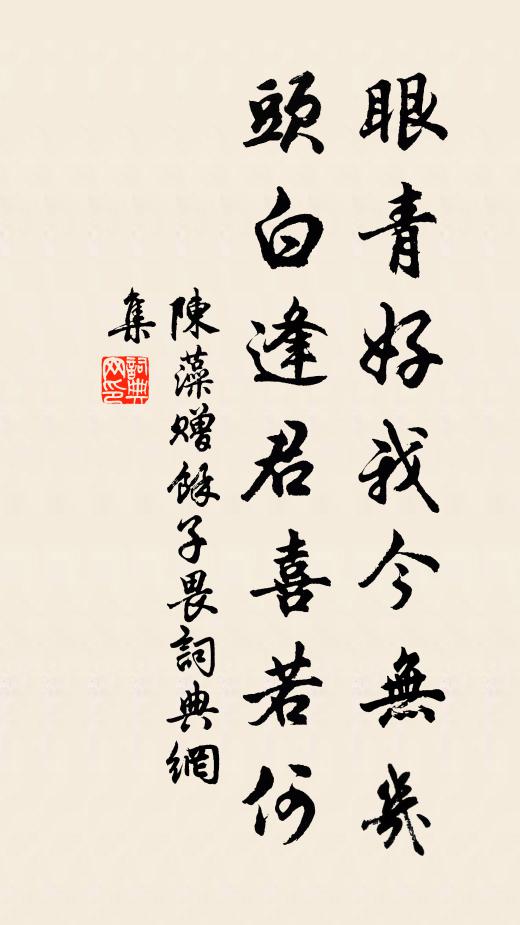 眼青好我今無幾
頭白逢君喜若何
陳藻贈餘子畏詞典網
集
詞典
网印